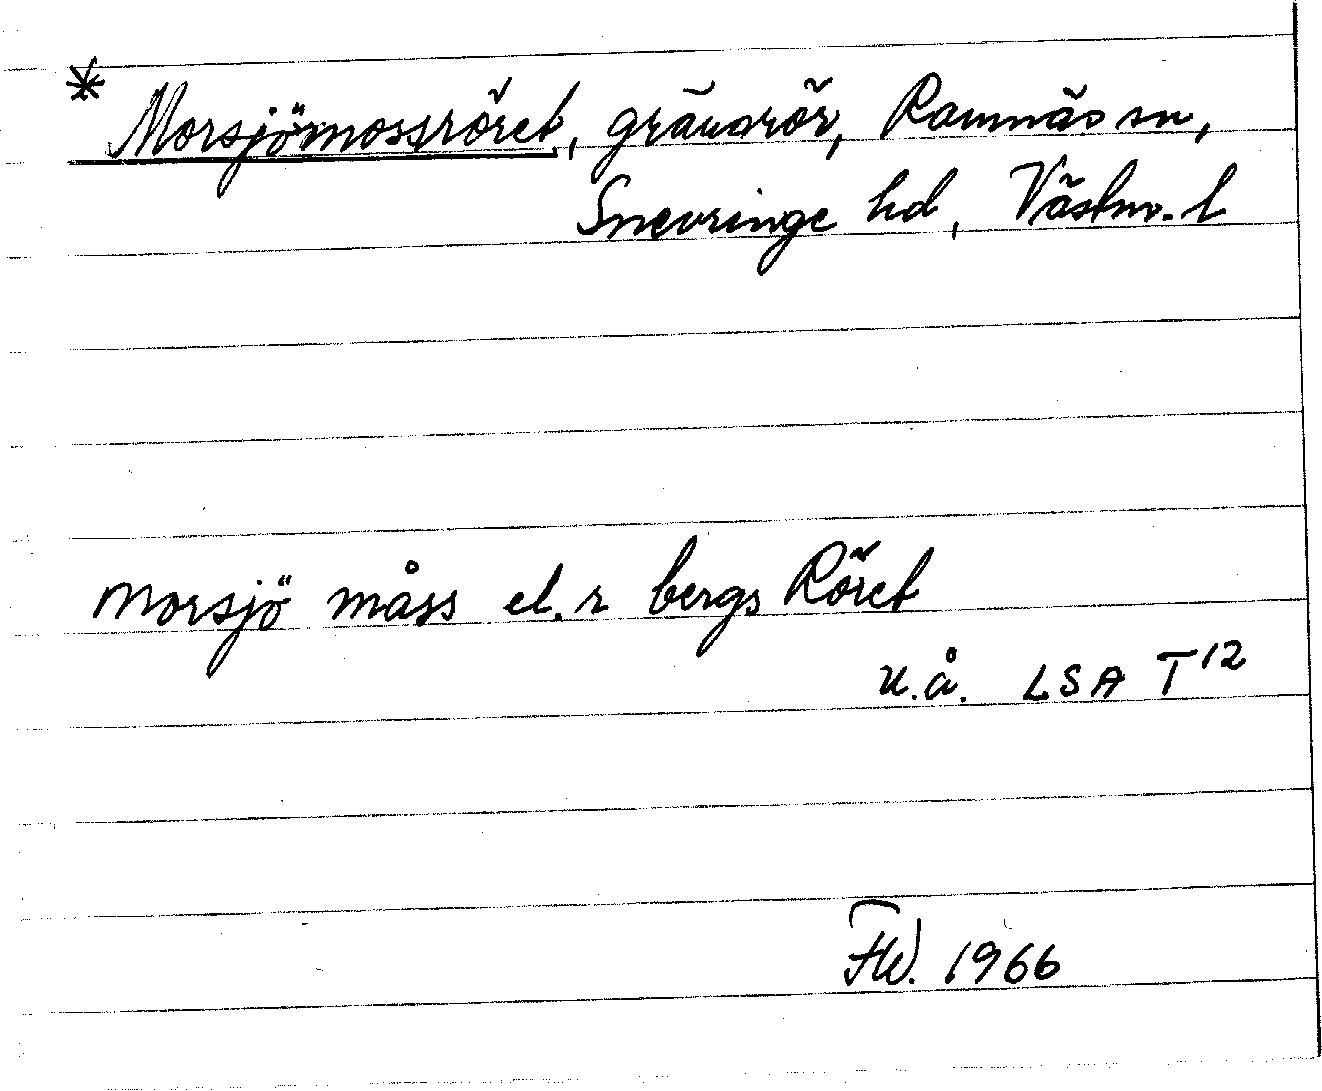 * Morsjömossröret, gränsrör, Ramnäs sn,
Snevringe hd, Västm. l
Morsjö måss el.r bergs Röret
u.å. LSA T12
FW. 1966